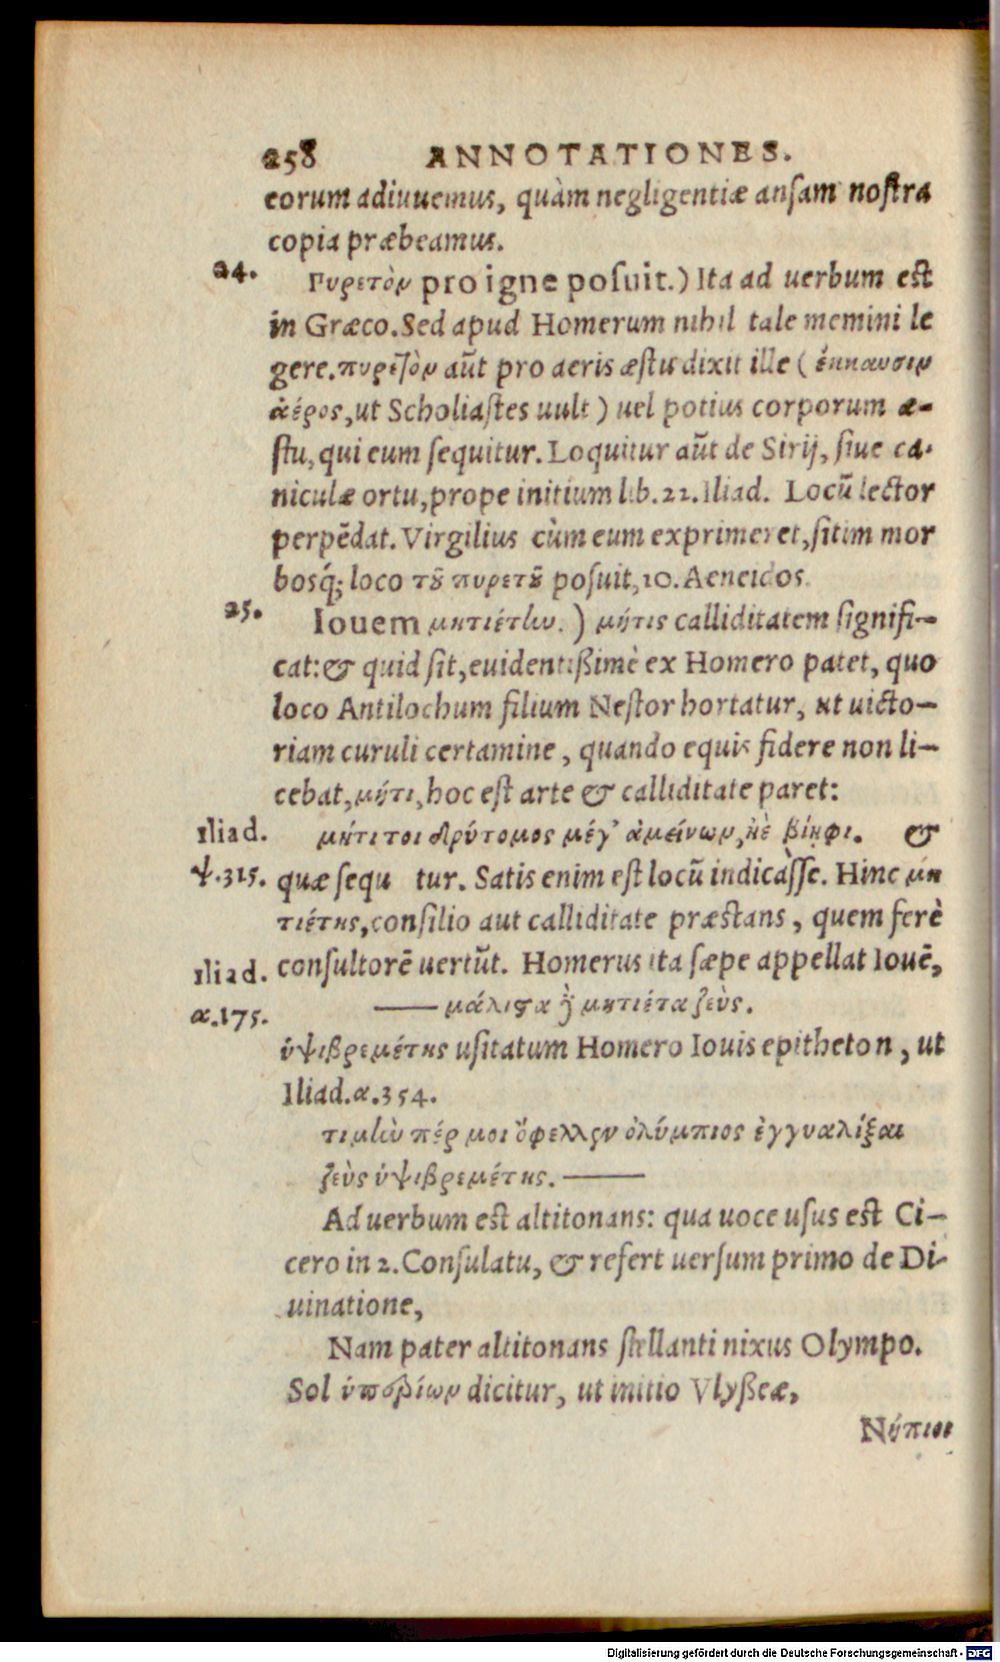 258 ANNOTATIONES.
eorum adiuuemus, quàm negligentiæ ansam nostra
copia præbeamus.
24. Πυρετὸν pro igne posuit.) Ita ad uerbum est
in Græco. Sed apud Homerum nihil tale memini le
gere. πυρετὸν aūt pro aeris æstu dixit ille (ἔκκαυσιν
ἀέρος, ut Scholiastes uult) uel potius corporum æ-
stu, qui eum sequitur. Loquitur aūt de Sirij, siue ca-
niculæ ortu, prope initium lib. 22. Iliad. Locū lector
perpēdat. Virgilius cùm eum exprimeret, sitim mor
bosq́; loco τȣ͂ πυρετȣ͂ posuit, 10. Aeneidos.
25. Iouem μητιέτην.) μῆτις calliditatem signifi-
cat: & quid sit, euidentißimè ex Homero patet, quo
loco Antilochum filium Nestor hortatur, ut uicto-
riam curuli certamine, quando equis fidere non li-
cebat, μήτι, hoc est arte & calliditate paret:
Iliad. μήτι τοι δρύτομος μέγ' ἀμείνων, ἠὲ βίηφι. &
ψ.315. quæ sequ tur. Satis enim est locū indicàsse. Hinc μη
τιέτης, consilio aut calliditate præstans, quem ferè
Iliad. consultorē uertūt. Homerus ita sæpe appellat Iouē,
α.175. —— μάλιϛα δὲ μητιέτα ζεὺς.
ὑψιβρεμέτης usitatum Homero Iouis epitheton, ut
Iliad. α. 354.
τιμὴν πέρ μοι ὄφελλεν ὀλύμπιος ἐγγυαλίξαι
ζεὺς ὑψιβρεμέτης. ——
Ad uerbum est altitonans: qua uoce usus est Ci-
cero in 2. Consulatu, & refert uersum primo de Di-
uinatione,
Nam pater altitonans stellanti nixus Olympo.
Sol ὑπερίων dicitur, ut initio Vlyßeæ,
Νήπιοι
Digitalisierung gefördert durch die Deutsche Forschungsgemeinschaft - DFG